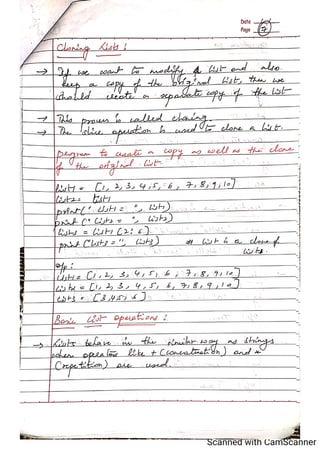 Date
Page 7
Cloning Lists :
→ If we want to modify a list and also
keep a copy of the original list, then we
should create a separate copy of the list
→ This process is called cloning.
→ The slice operation is used to clone a list.
program to create a copy as well as the clone
of the original list
list1 = [1, 2, 3, 4, 5, 6, 7, 8, 9, 10]
list2 = list1
print(" list1 = ", list1)
print(" list2 = ", list2)
list3 = list1[2:6]
print("list3 = ", list3) # list3 is a clone of
o/p :
list1 = [1, 2, 3, 4, 5, 6, 7, 8, 9, 10]
= [1, 2, 3, 4, 5, 6, 7, 8, 9, 10]
list3 = [3,4,5, 6]
Basic List operations :
→ Lists behave in the similar way as strings
when operators like + (concatenation) and *
(repetition) are used.
Scanned with CamScanner